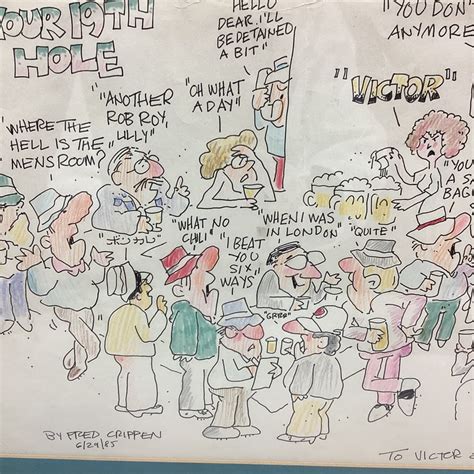 OUR 19TH
HOLE
HELLO
DEAR. I'LL
BE DETAINED
A BIT"
"YOU DON'T
ANYMORE
"VICTOR"
"OH WHAT
A DAY"
"ANOTHER
ROB ROY,
LILLY"
"WHERE THE
HELL IS THE
MENS ROOM?
"YOU'
A SA
BAC
"ボンカレ"
"WHAT NO
CHILI"
"I BEAT
YOU
SIX
WAYS"
"WHEN I WAS
IN LONDON"
"QUITE"
"GRRR"
BY FRED CRIPPEN
6/29/85
TO VICTOR